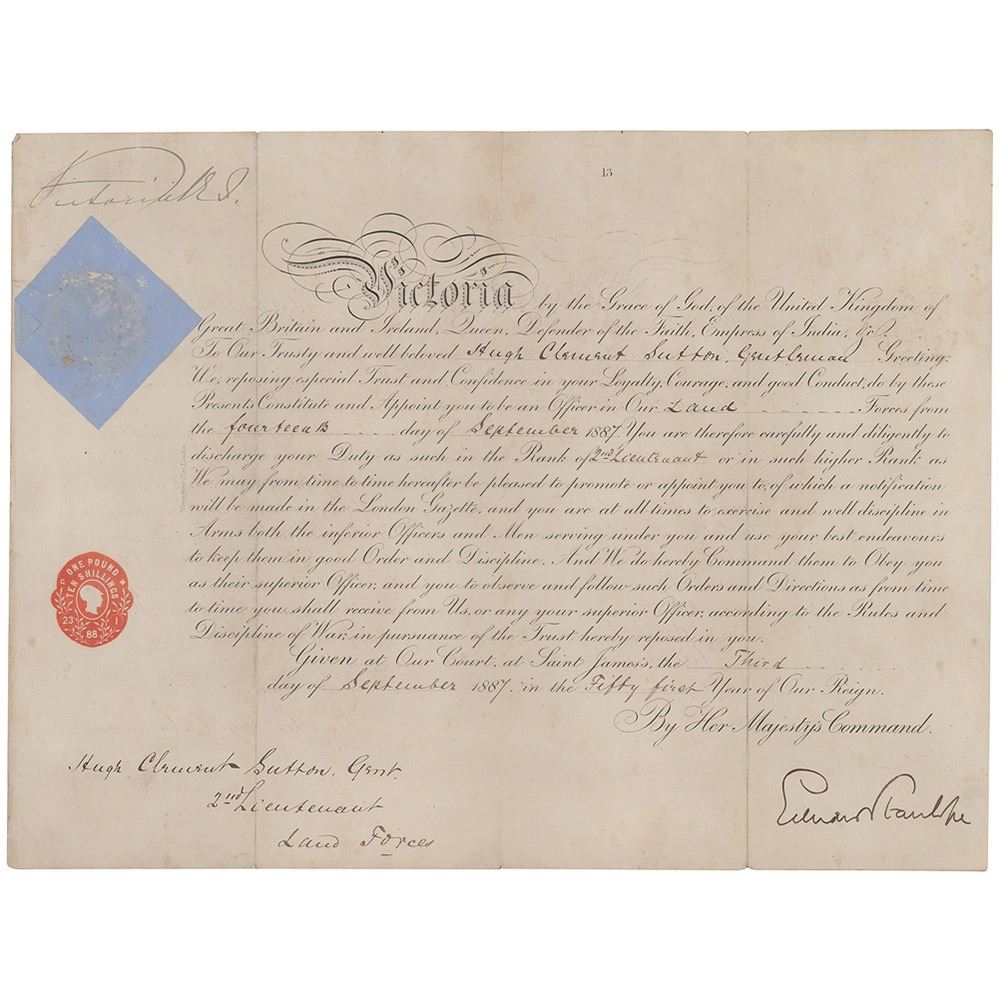 Victoria R I.
13
Victoria by the Grace of God, of the United Kingdom of
Great Britain and Ireland, Queen, Defender of the Faith, Empress of India, &c.
To Our Trusty and well beloved Hugh Clement Sutton, Gentleman Greeting:
We, reposing especial Trust and Confidence in your Loyalty, Courage, and good Conduct, do by these
Presents Constitute and Appoint you to be an Officer in Our Land Forces from
the fourteenth day of September 1887. You are therefore carefully and diligently to
discharge your Duty as such in the Rank of 2nd Lieutenant or in such higher Rank as
We may from time to time hereafter be pleased to promote or appoint you to, of which a notification
will be made in the London Gazette, and you are at all times to exercise and well discipline in
Arms both the inferior Officers and Men serving under you and use your best endeavours
to keep them in good Order and Discipline. And We do hereby Command them to Obey you
as their superior Officer, and you to observe and follow such Orders and Directions as from time
to time you shall receive from Us, or any your superior Officer, according to the Rules and
Discipline of War, in pursuance of the Trust hereby reposed in you.
Given at Our Court, at Saint James's, the Third
day of September 1887, in the Fifty first Year of Our Reign.
By Her Majesty's Command.
ONE POUND
TEN SHILLINGS
23 1
88
Hugh Clement Sutton, Gent.
2nd Lieutenant
Land Forces
Edward Stanhope